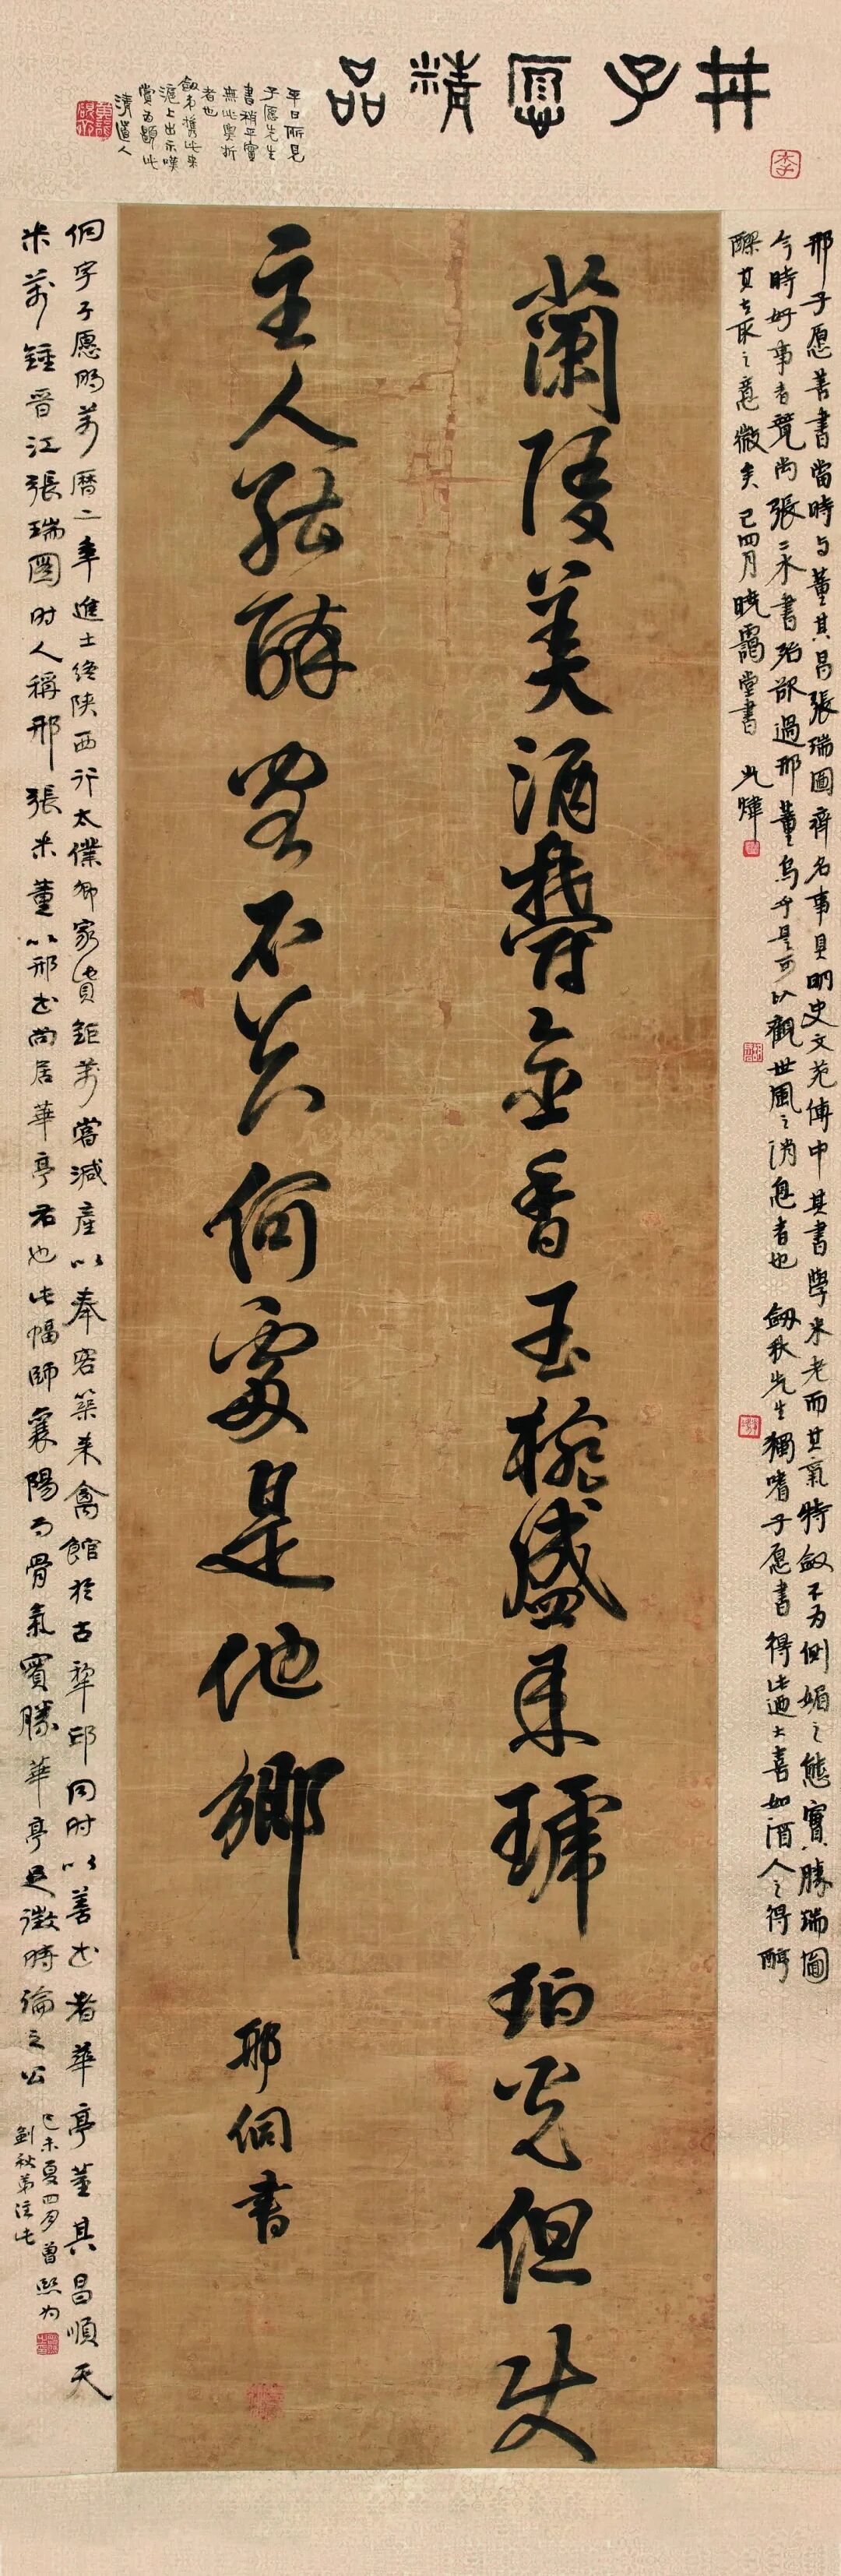 邢子愿精品
平日所見
子愿先生
書稍平實
無此奥折
者也
劔弟携此来
滬上出示嘆
賞而顯此
清道人
邢子愿善書當時与董其昌張瑞圖齊名事具明史文苑傳中其書學米老而其氣特斂不为側媚之態實勝瑞圖
今時好事者競尚張二水書殆欲過邢董烏乎是可以觀世風之消息者也 劔秋先生獨嗜子愿書得此過大喜如酒人之得醇
醪其去取之意微矣 己四月晓靄堂書 光煒
蘭陵美酒鬱金香玉椀盛来琥珀光但使
主人能醉客不知何處是他鄉
邢侗書
侗字子愿明萬曆二年進士終陕西行太僕卿家貲鉅萬嘗減產以奉客築来禽館於古犂邱同时以善书者華亭董其昌順天
米萬鍾晋江張瑞圖时人稱邢張米董以邢书尚居華亭右也此幅師襄陽而骨氣實勝華亭足徵時論之公
己未夏四月曾熙为
劍秋弟注此